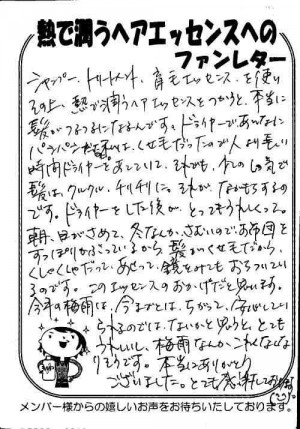 熱で潤うヘアエッセンスへの
ファンレター
シャンプー、トリートメント、育毛エッセンスを使い
その上、熱で潤うヘアエッセンスをつかうと、本当に
髪がつるつるになるんです。ドライヤーであんなに
くせ毛だったので人より長い
時間ドライヤーをあてていて、それでも、湿気で
髪は、クルクル、チリチリに。それが、なかもするの
です。ドライヤーをした後が、とってもうれしくって。
朝、目がさめて、冬なんか、さむいので、お布団を
すっぽりかぶっているから、髪がくせ毛だから、
くしゃくしゃだって、あせって、鏡をみてもおちついてい
るのです。このエッセンスのおかげだと思います。
今年の梅雨は、今までとは、ちがって、安心してい
られるのでは、ないかと思うと、とても
うれしいし、梅雨なんか、こわくないよ
りそうです。本当にありがとう
ございました。とても感謝しております
メンバー様からの嬉しいお声をお待ちいたしております。